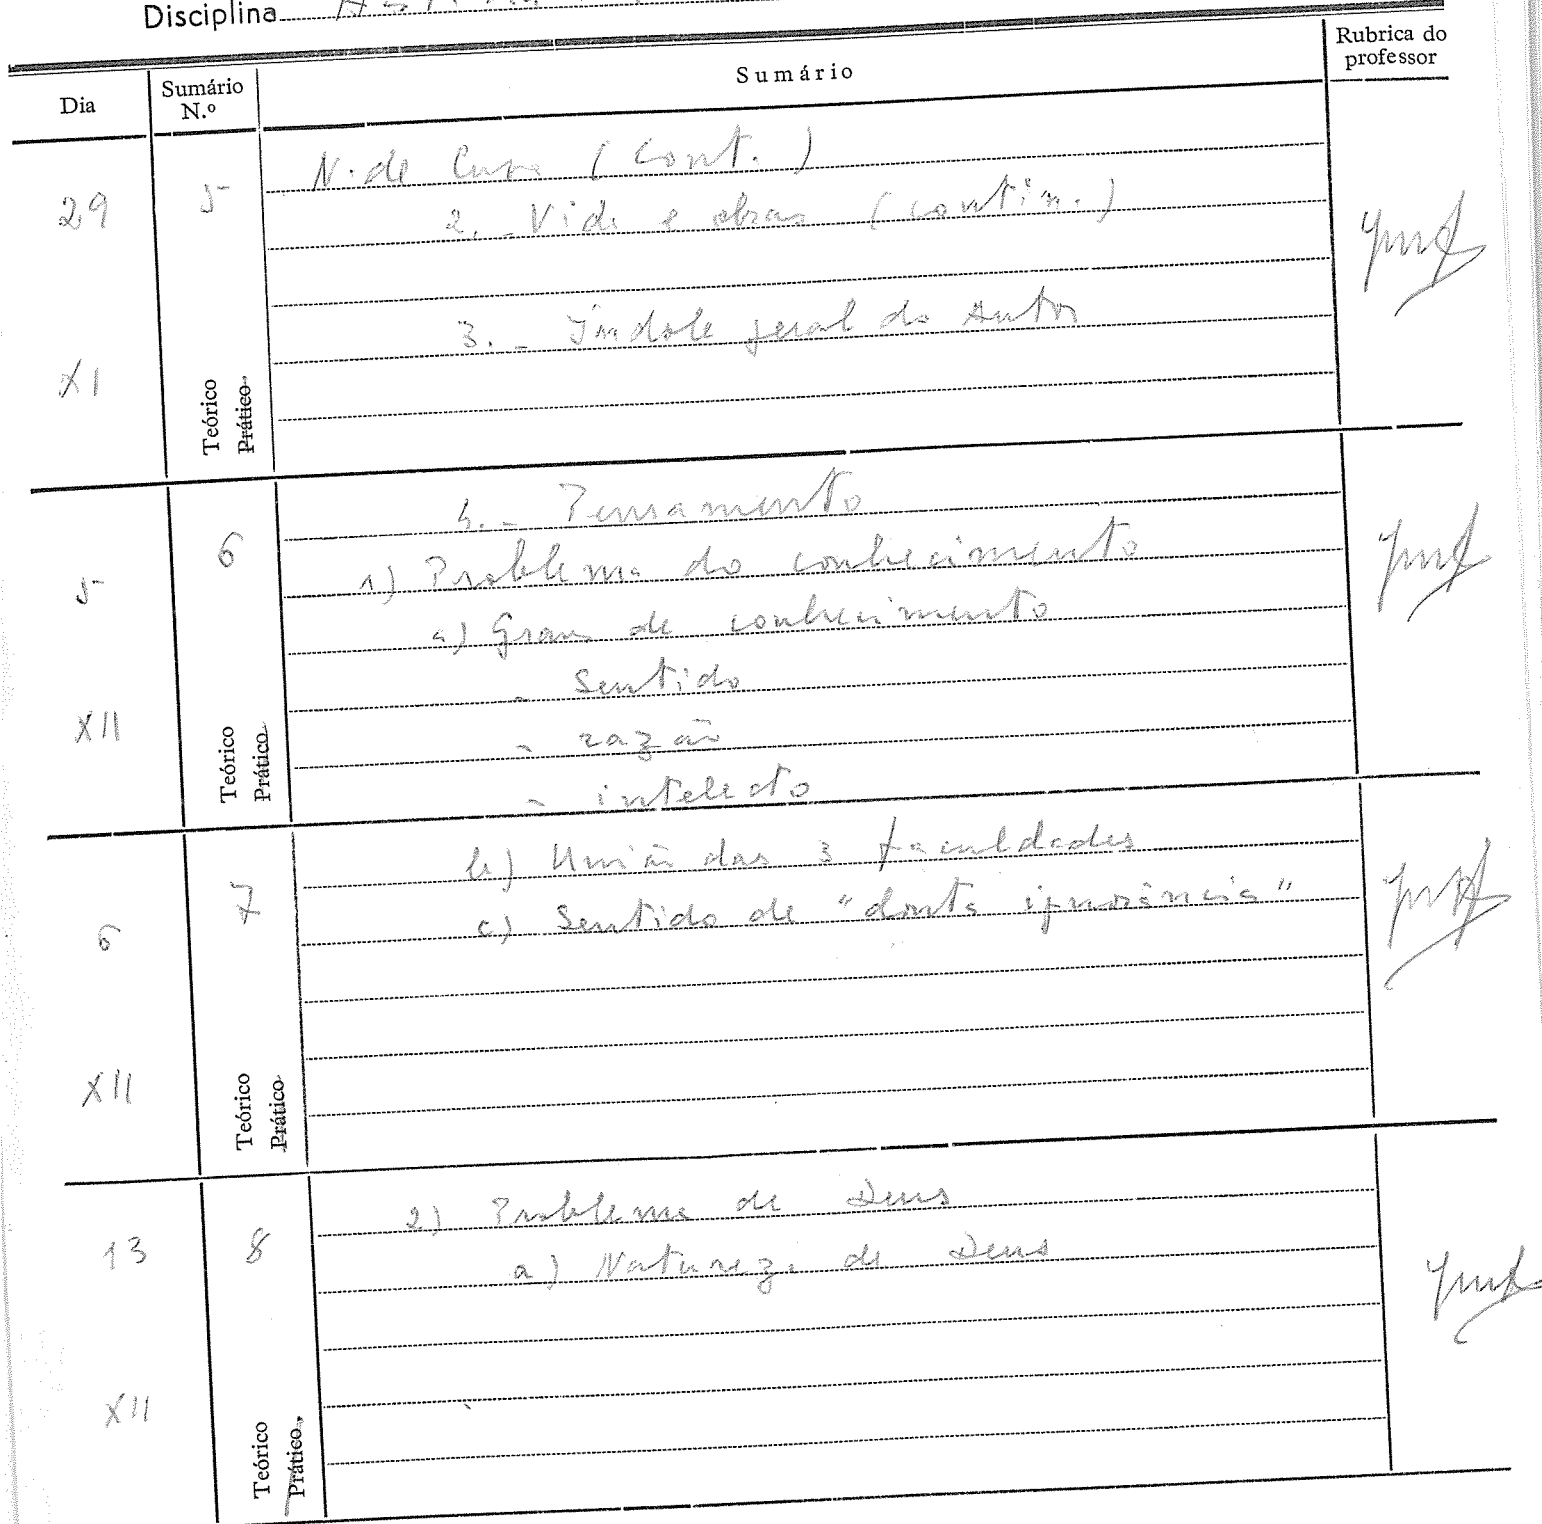 Disciplina
Dia
Sumário N.º
Sumário
Rubrica do professor
29
XI
5
Teórico
Prático
N. de Cusa (Cont.)
2. - Vida e obras (contin.)
3. - Índole geral do Autor
5
XII
6
Teórico
Prático
4. - Pensamento
1) Problema do conhecimento
a) Graus de conhecimento
- Sentido
- razão
- intelecto
6
XII
7
Teórico
Prático
b) União das 3 faculdades
c) Sentido de "douta ignorância"
13
XII
8
Teórico
Prático
2) Problema de Deus
a) Natureza de Deus